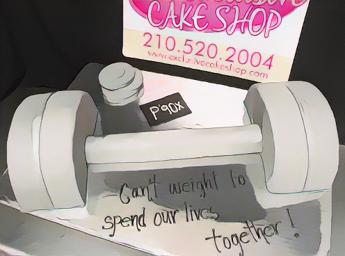 CAKE SHOP
210.520.2004
www.exclusivecakeshop.com
P90X
Can't weight to
spend our lives
together!